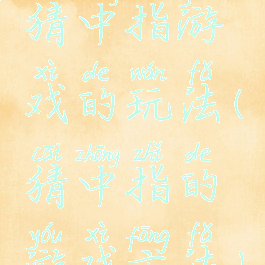 猜中指游
xì de wán fǎ
戏的玩法(
cāi zhōng zhǐ de
猜中指的
yóu xì fāng fǎ
游戏方法)